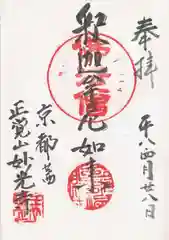 奉拝
平八四月廿八日
釈迦牟尼如来
京都嵩
正覚山妙光寺